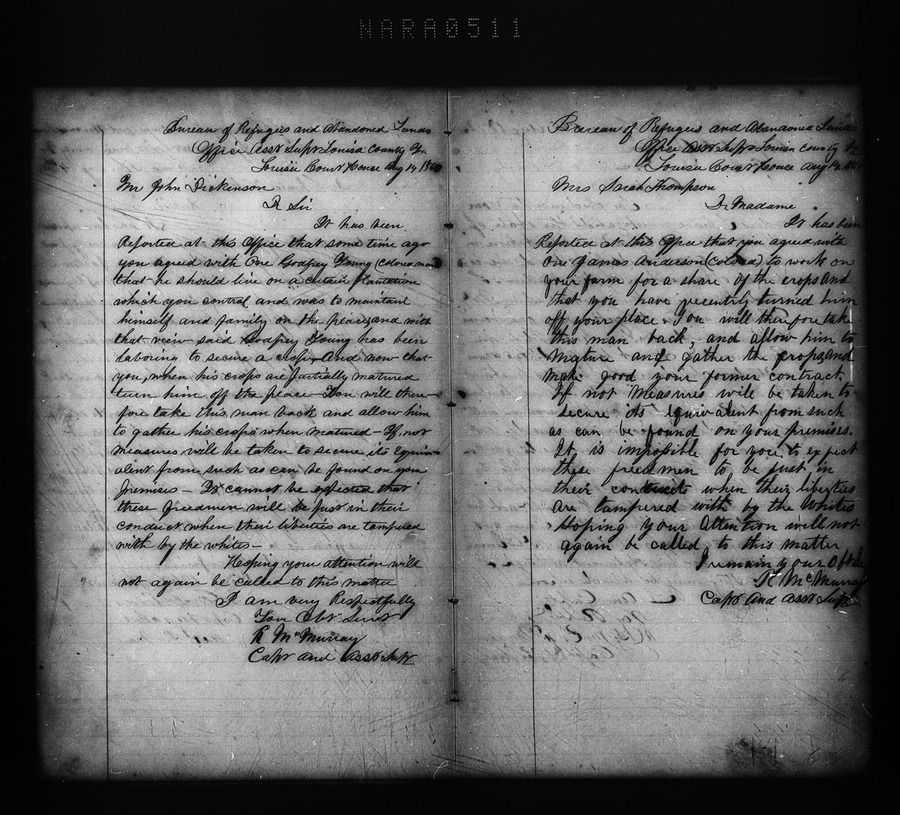 NARA0511
Bureau of Refugees and Abandoned Lands
Office Asst Supt Louisa County Va
Louisa Court House Aug 14
Mr John Dickinson
D Sir
It has been
Reported at this Office that some time ago
you agreed with One Godfrey Young (Colored man
that he should live on a certain plantation
which you control and was to maintain
himself and family on the place, and with
that veiw said Godfrey Young has been
laboring to secure a crop. And now that
you, when his crops are partially matured
turn him off the place – You will there
fore take this man back and allow him
to gather his crops when matured – If not
measures will be taken to secure its Equiv
alent from such as can be found on you
premises – It cannot be expected that
these freedmen will be just in their
conduct when their liberties are tampered
with by the whites –
Hoping your attention will
not again be called to this matter
I am very Respectfully
Your Obt Servt
R McMurray
Capt and Asst Supt
Bureau of Refugees and Abandoned Lands
Office Asst Supt Louisa County
Louisa Court House Aug 14
Mrs Sarah Thompson
Dr Madame
It has been
Reported at this Office that you agreed with
One James Anderson (Colored) to work on
your farm for a share of the crops and
that you have recently turned him
off your place. You will therefore take
this man back, and allow him to
mature and gather the crops, and
make good your former contract
If not Measures will be taken to
secure its Equivalent from such
as can be found on your premises.
It is impossible for you to expect
these freedmen to be just in
their when their liberties
are tampered with by the Whites
Hoping your Attention will not
again be called to this matter
I remain your
R McMurray
Capt And Asst Supt